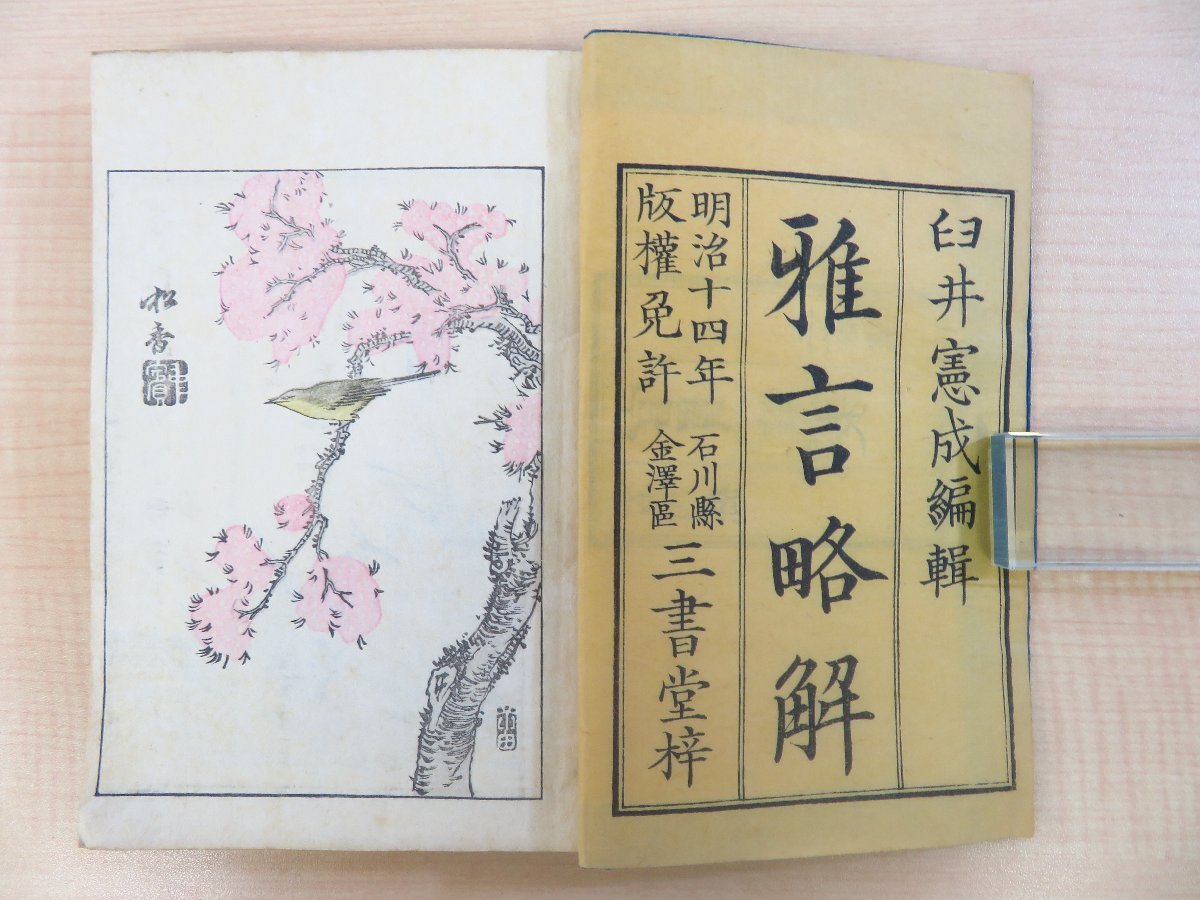 臼井憲成編輯
雅言略解
明治十四年
版權免許
石川縣
金澤區
三書堂梓
松香